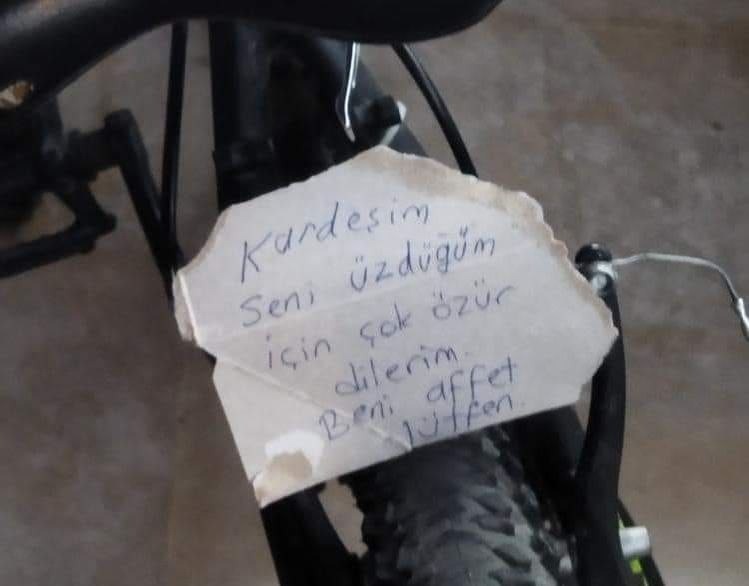 Kardeşim
Seni üzdüğüm
için çok özür
dilerim.
Beni affet
lütfen.